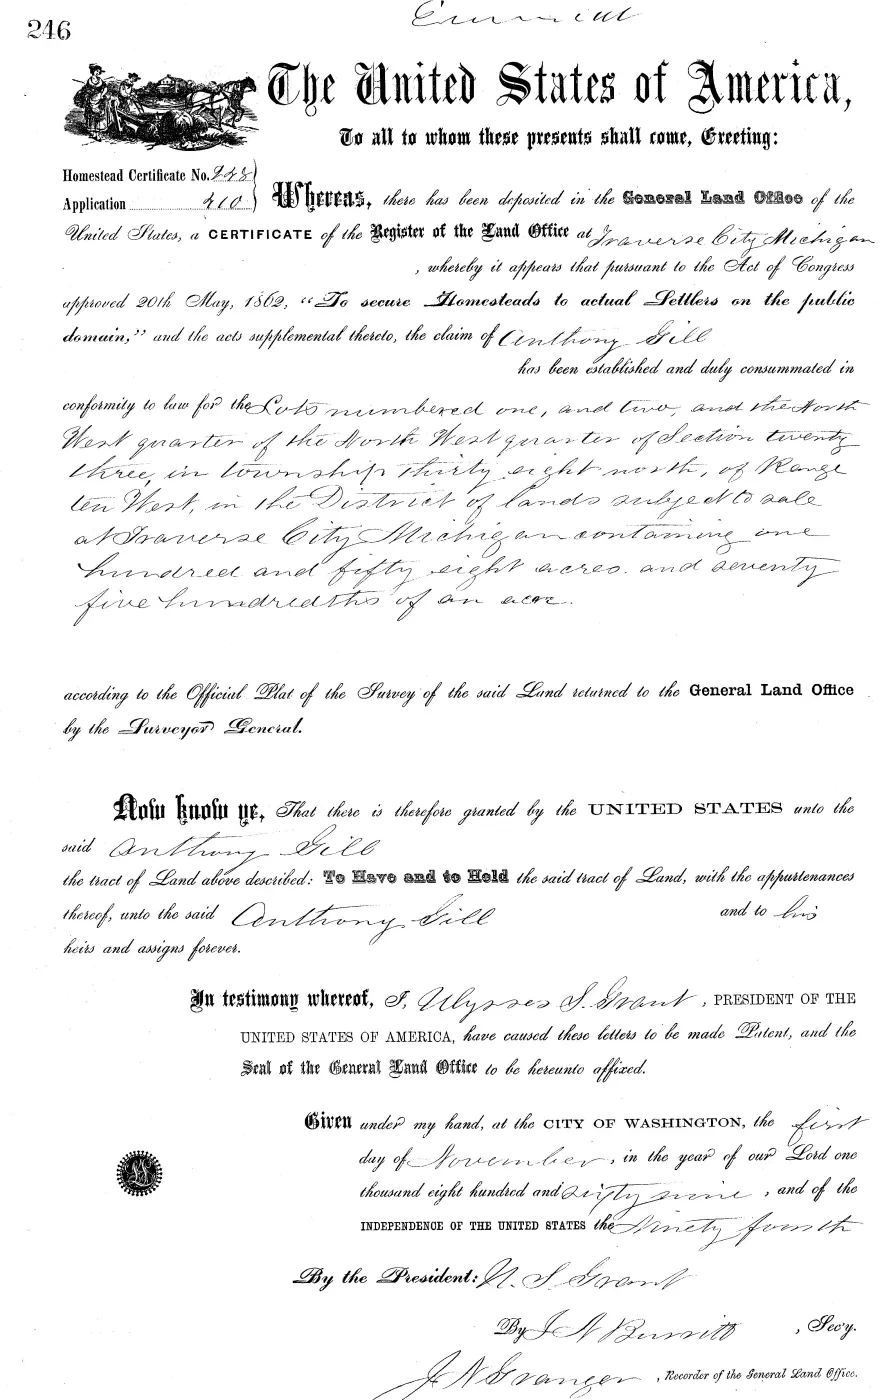 246
The United States of America,
To all to whom these presents shall come, Greeting:
Homestead Certificate No. 228
Application 210
Whereas, there has been deposited in the General Land Office of the
United States, a CERTIFICATE of the Register of the Land Office at Traverse City Michigan
, whereby it appears that pursuant to the Act of Congress
approved 20th May, 1862, "To secure Homesteads to actual Settlers on the public
domain," and the acts supplemental thereto, the claim of Anthony Gill
has been established and duly consummated in
conformity to law for the Lots numbered one, and two, and the North
West quarter of the North West quarter of Section twenty
three, in township thirty eight north, of Range
ten West, in the District of lands subject to sale
at Traverse City Michigan containing one
hundred and fifty eight acres. and seventy
five hundredths of an acre.
according to the Official Plat of the Survey of the said Land returned to the General Land Office
by the Surveyor General.
Now know ye, That there is therefore granted by the UNITED STATES unto the
said Anthony Gill
the tract of Land above described: To Have and to Hold the said tract of Land, with the appurtenances
thereof, unto the said Anthony Gill and to his
heirs and assigns forever.
In testimony whereof, I, Ulysses S. Grant, PRESIDENT OF THE
UNITED STATES OF AMERICA, have caused these letters to be made Patent, and the
Seal of the General Land Office to be hereunto affixed.
Given under my hand, at the CITY OF WASHINGTON, the first
day of November, in the year of our Lord one
thousand eight hundred and sixty nine, and of the
INDEPENDENCE OF THE UNITED STATES the Ninety fourth
By the President: U. S. Grant
By , Sec'y.
J N Granger, Recorder of the General Land Office.